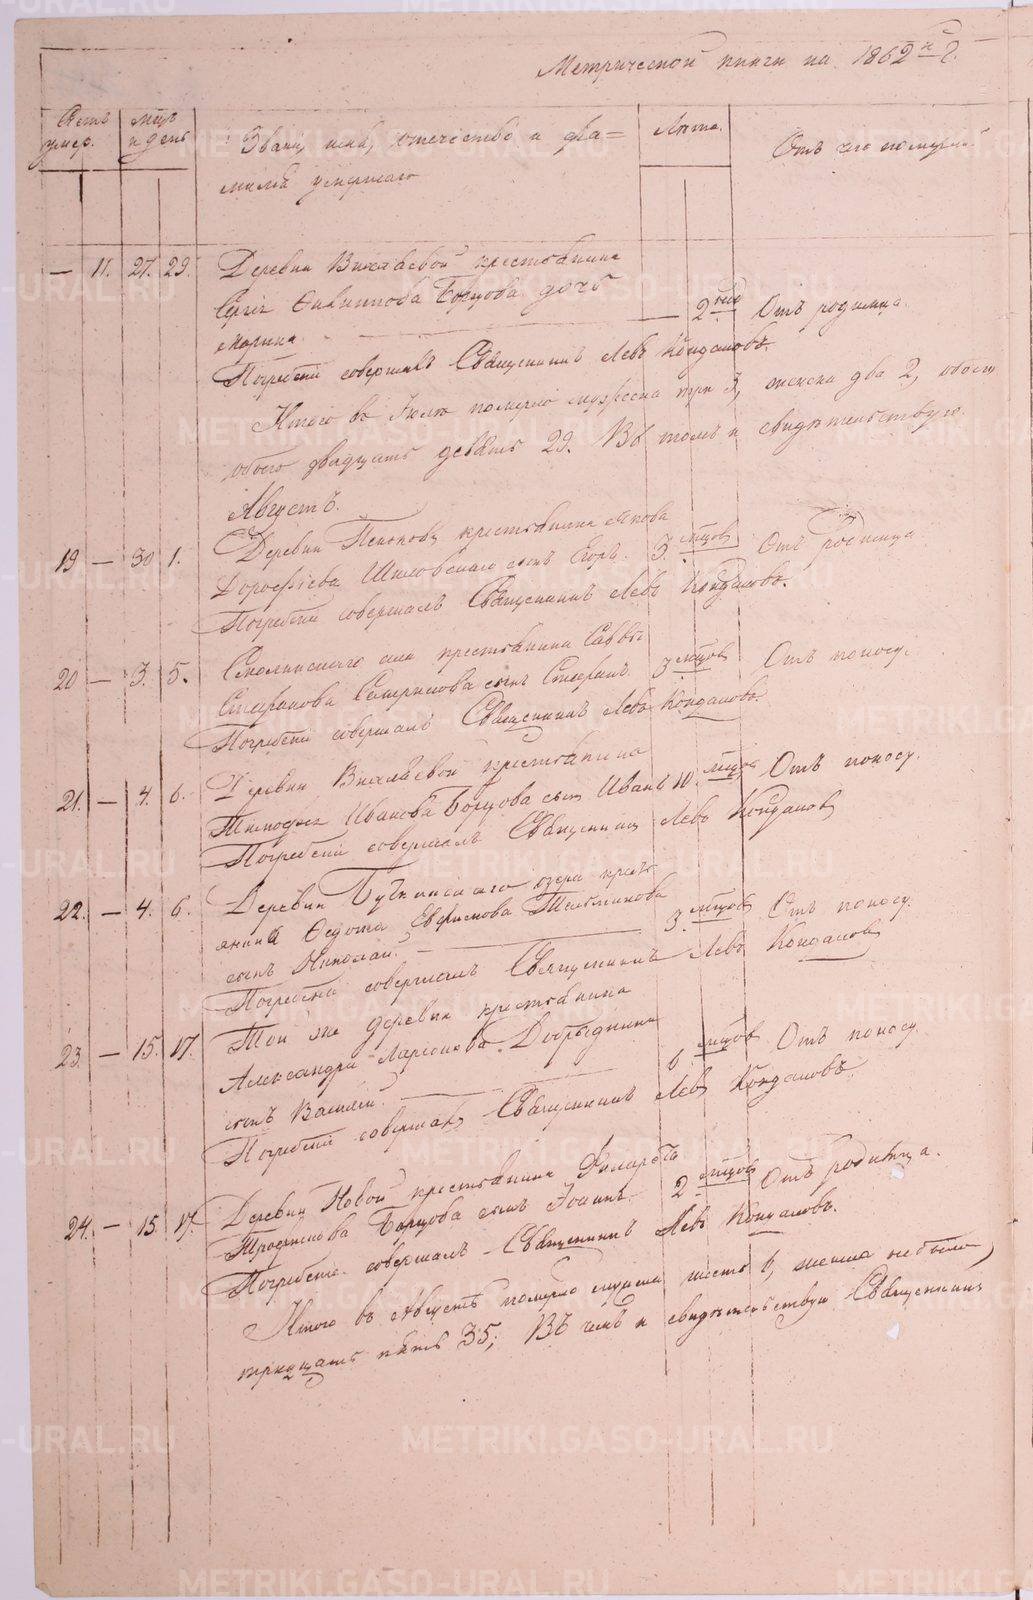 Метрической книги на 1862й г.
Счетъ умер.
мѣц. и день
Званіе имя, отечество и фа=
милія умершаго
Лѣта.
Отъ чего померъ
— 11. 27. 29. Деревни крестьянина
Сергія Филиппова Борцова дочь
Марина — 2 нед Отъ родимца.
Погребеніе совершалъ Священникъ Левъ Кондаковъ.
Итого въ Іюлѣ померло мужеска три 3, женска два 2, обоего
двадцать девять 29. Въ томъ и свидѣтельствую
Августъ.
19 — 30 1. Деревни крестьянина Якова
Дорофѣева сынъ Егоръ. 3 мѣцов Отъ родимца
Погребеніе совершалъ Священникъ Левъ Кондаковъ.
20 — 3. 5. Смолинскаго села крестьянина Саввы
Стефанова сынъ Стефанъ. 3 мѣцов Отъ поносу.
Погребеніе совершалъ Священникъ Левъ Кондаковъ.
21. — 4. 6. Деревни крестьянина
Тимофея Иванова Борцова сынъ Иванъ 10. мѣцов Отъ поносу.
Погребеніе совершалъ Священникъ Левъ Кондаковъ
22. — 4. 6. Деревни озера кресть
янина Федота Евфимова
сынъ Николай. — 3. мѣцов Отъ поносу.
Погребеніе совершалъ Священникъ Левъ Кондаковъ
23. — 15. 17. Той же деревни крестьянина
Александра Ларіонова Добрыднина
сынъ Василій. — 6 мѣцов Отъ поносу
Погребеніе совершалъ Священникъ Левъ Кондаковъ.
24. — 15. 17. Деревни Новой крестьянина Филарета
Трофимова Борцова сынъ Іоаннъ. 2 мѣцов Отъ родимца.
Погребеніе совершалъ Священникъ Левъ Кондаковъ.
Итого въ Августѣ померло мужска шесть 6, женска не было,
тридцать пять 35; Въ чемъ и свидѣтельствую Священникъ
METRIKI.GASO-URAL.RU